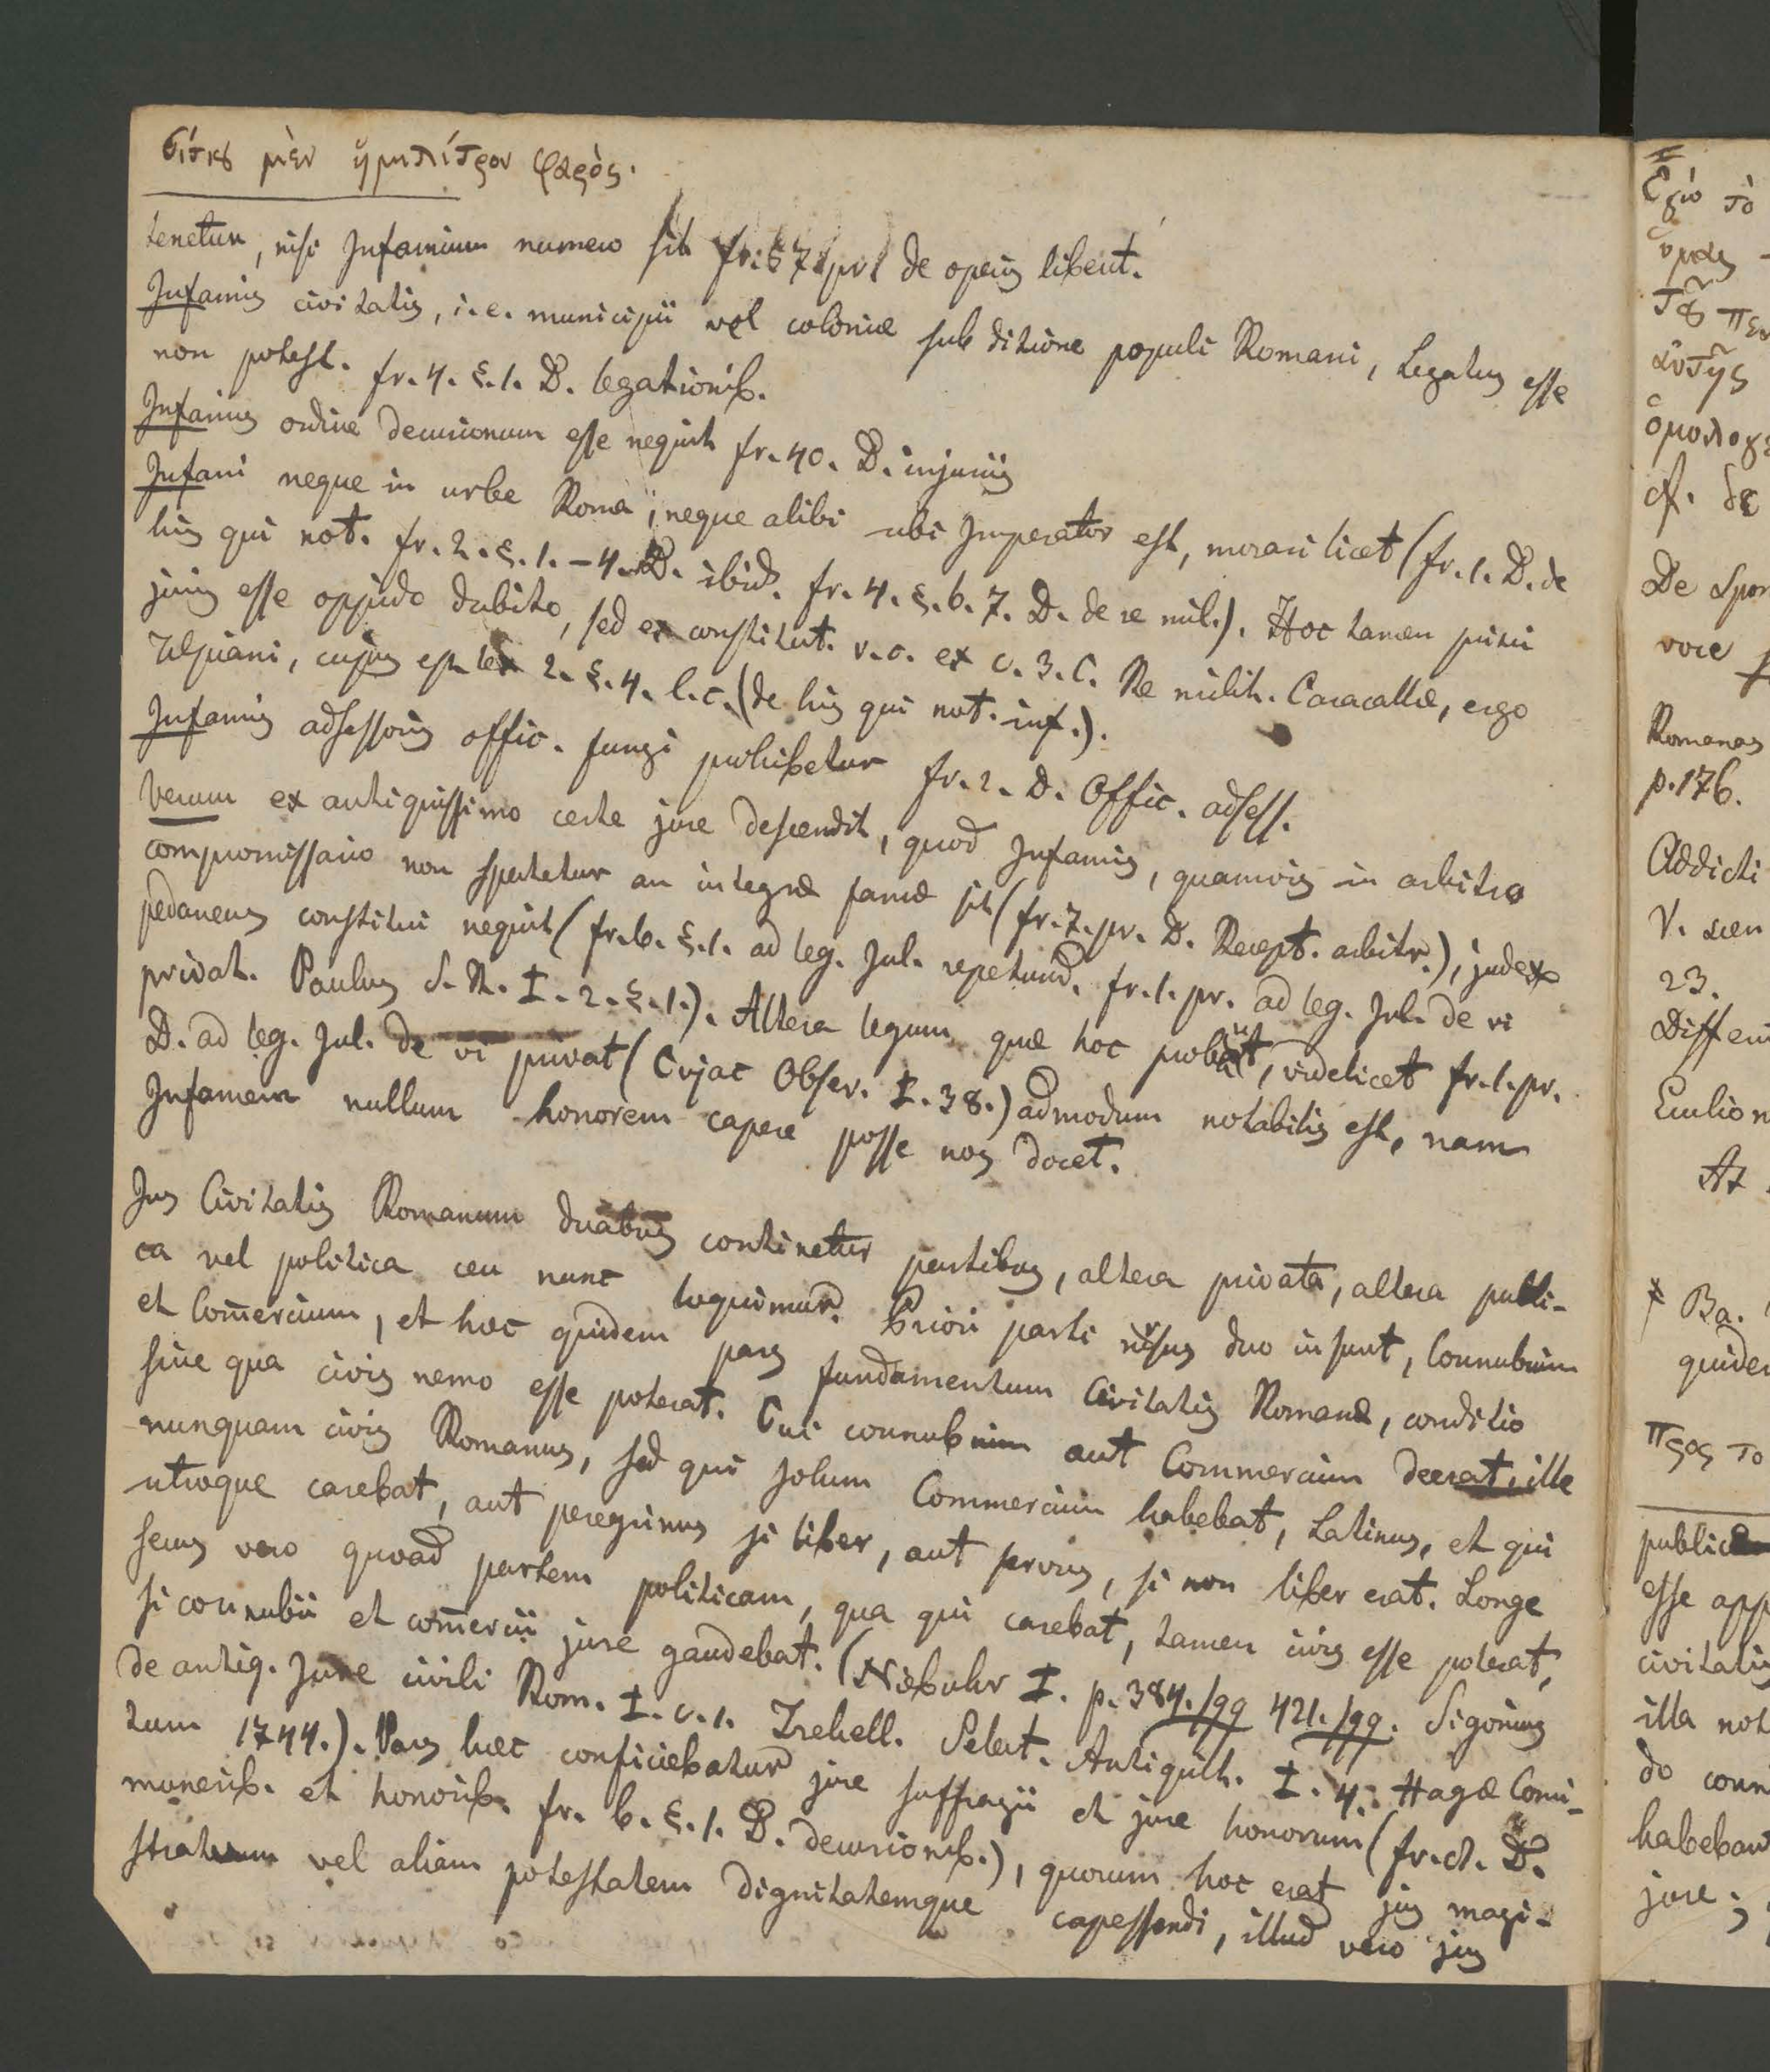 σίτου μὲν ἡμιλίτρον φαρὸς.
tenetur, nisi Infamium numero sit fr. 57. pr. de operis libert.
Infamis civitatis, i.e. municipii vel coloniæ sub ditione populi Romani, Legatus esse
non potest. fr. 4. §. 1. D. legationib.
Infamis ordine decurionum esse nequit fr. 40. D. injuriis
Infami neque in urbe Roma, neque alibi ubi Imperator est, morari licet (fr. 1. D. de
his qui not. fr. 2. §. 1. - 4. D. ibid. fr. 4. §. 6. 7. D. de re mil.). Hoc tamen prisci
juris esse oppido dubito, sed ex constitut. v.c. ex c. 3. C. Re milit. Caracallæ, ergo
Ulpiani, cujus est lex 2. §. 4. l. c. (de his qui not. inf.).
Infamis adsessoris offic. fungi prohibetur fr. 2. D. Offic. adsess.
Verum ex antiquissimo certe jure descendit, quod Infamis, quamvis in arbitro
compromissario non spectetur an integræ famæ sit (fr. 7. pr. D. Recept. arbitr.), judex
pedaneus constitui nequit (fr. 6. §. 1. ad leg. Jul. repetund. fr. 1. pr. ad leg. Jul. de vi
privat. Paulus S. R. I. 2. §. 1.). Altera legum quæ hoc probant, videlicet fr. 1. pr.
D. ad leg. Jul. de vi privat (Cujac Obser. I. 38.) admodum notabilis est, nam
Infamem nullum honorem capere posse nos docet.
Jus Civitatis Romanum duabus continetur partibus, altera privata, altera publi-
ca vel politica ceu nunc loquimur. Priori parti rursus duo insunt, Connubium
et Com̄ercium, et hæc quidem pars fundamentum Civitatis Romanæ, conditio
sine qua civis nemo esse poterat. Cui connubium aut Commercium deerat, ille
nunquam civis Romanus, sed qui solum Commercium habebat, Latinus, et qui
utroque carebat, aut peregrinus si liber, aut servus, si non liber erat. Longe
secus vero quoad partem politicam, qua qui carebat, tamen civis esse poterat,
si connubii et com̄ercii jure gaudebat. (Niebuhr I. p. 384. sqq 421. sqq. Sigonius
de antiq. Jure civili Rom. I. c. 1. Trekell. Select. Antiquit. I. 4. Hagæ Comi-
tum 1744.). Pars hæc conficiebatur jure suffragii et jure honorum (fr. D.
munerib. et honorib. fr. 6. §. 1. D. decurionib.), quorum hoc erat jus magi-
stratum vel aliam potestatem dignitatemque capessendi, illud vero jus
Ἐγὼ τὸ
ὑμᾶς
τοῦ πεν
αὐτῆς
ὁμολογε
cf. δε
De Spon
voce
Romanas
p. 176.
Addicti
V.
23.
Differ
At
Ba.
quidem
προς το
publicæ
esse app
civitatis
illa not
do conn
habeban
jure;